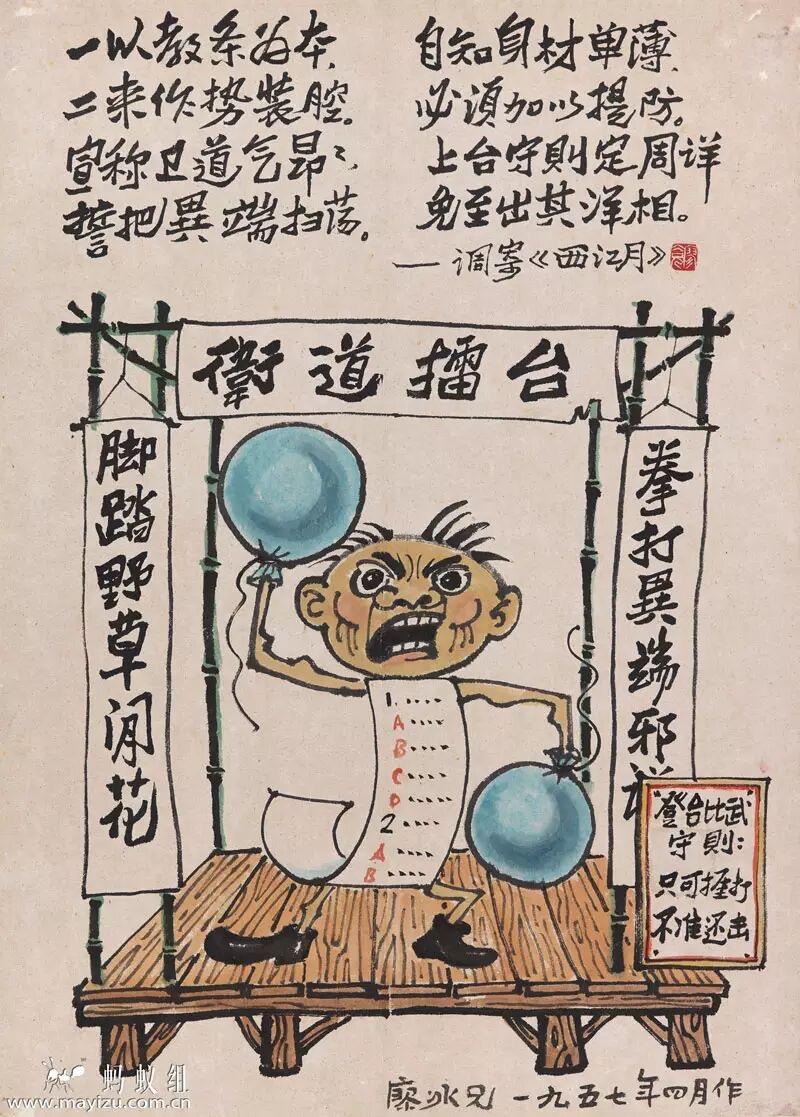 一以教条为本、
二来作势装腔。
宣称卫道气昂々、
誓把異端扫荡。
自知身材单薄、
必须加以提防。
上台守則定周详
免至出其洋相。
— 调寄《西江月》
衛道擂台
脚踏野草闲花
拳打異端邪説
登台比武
守則：
只可捱打
不准还击
1.
A
B
C
D
2
A
B
廖冰兄 一九五七年四月作
蚂蚁组
www.mayizu.com.cn